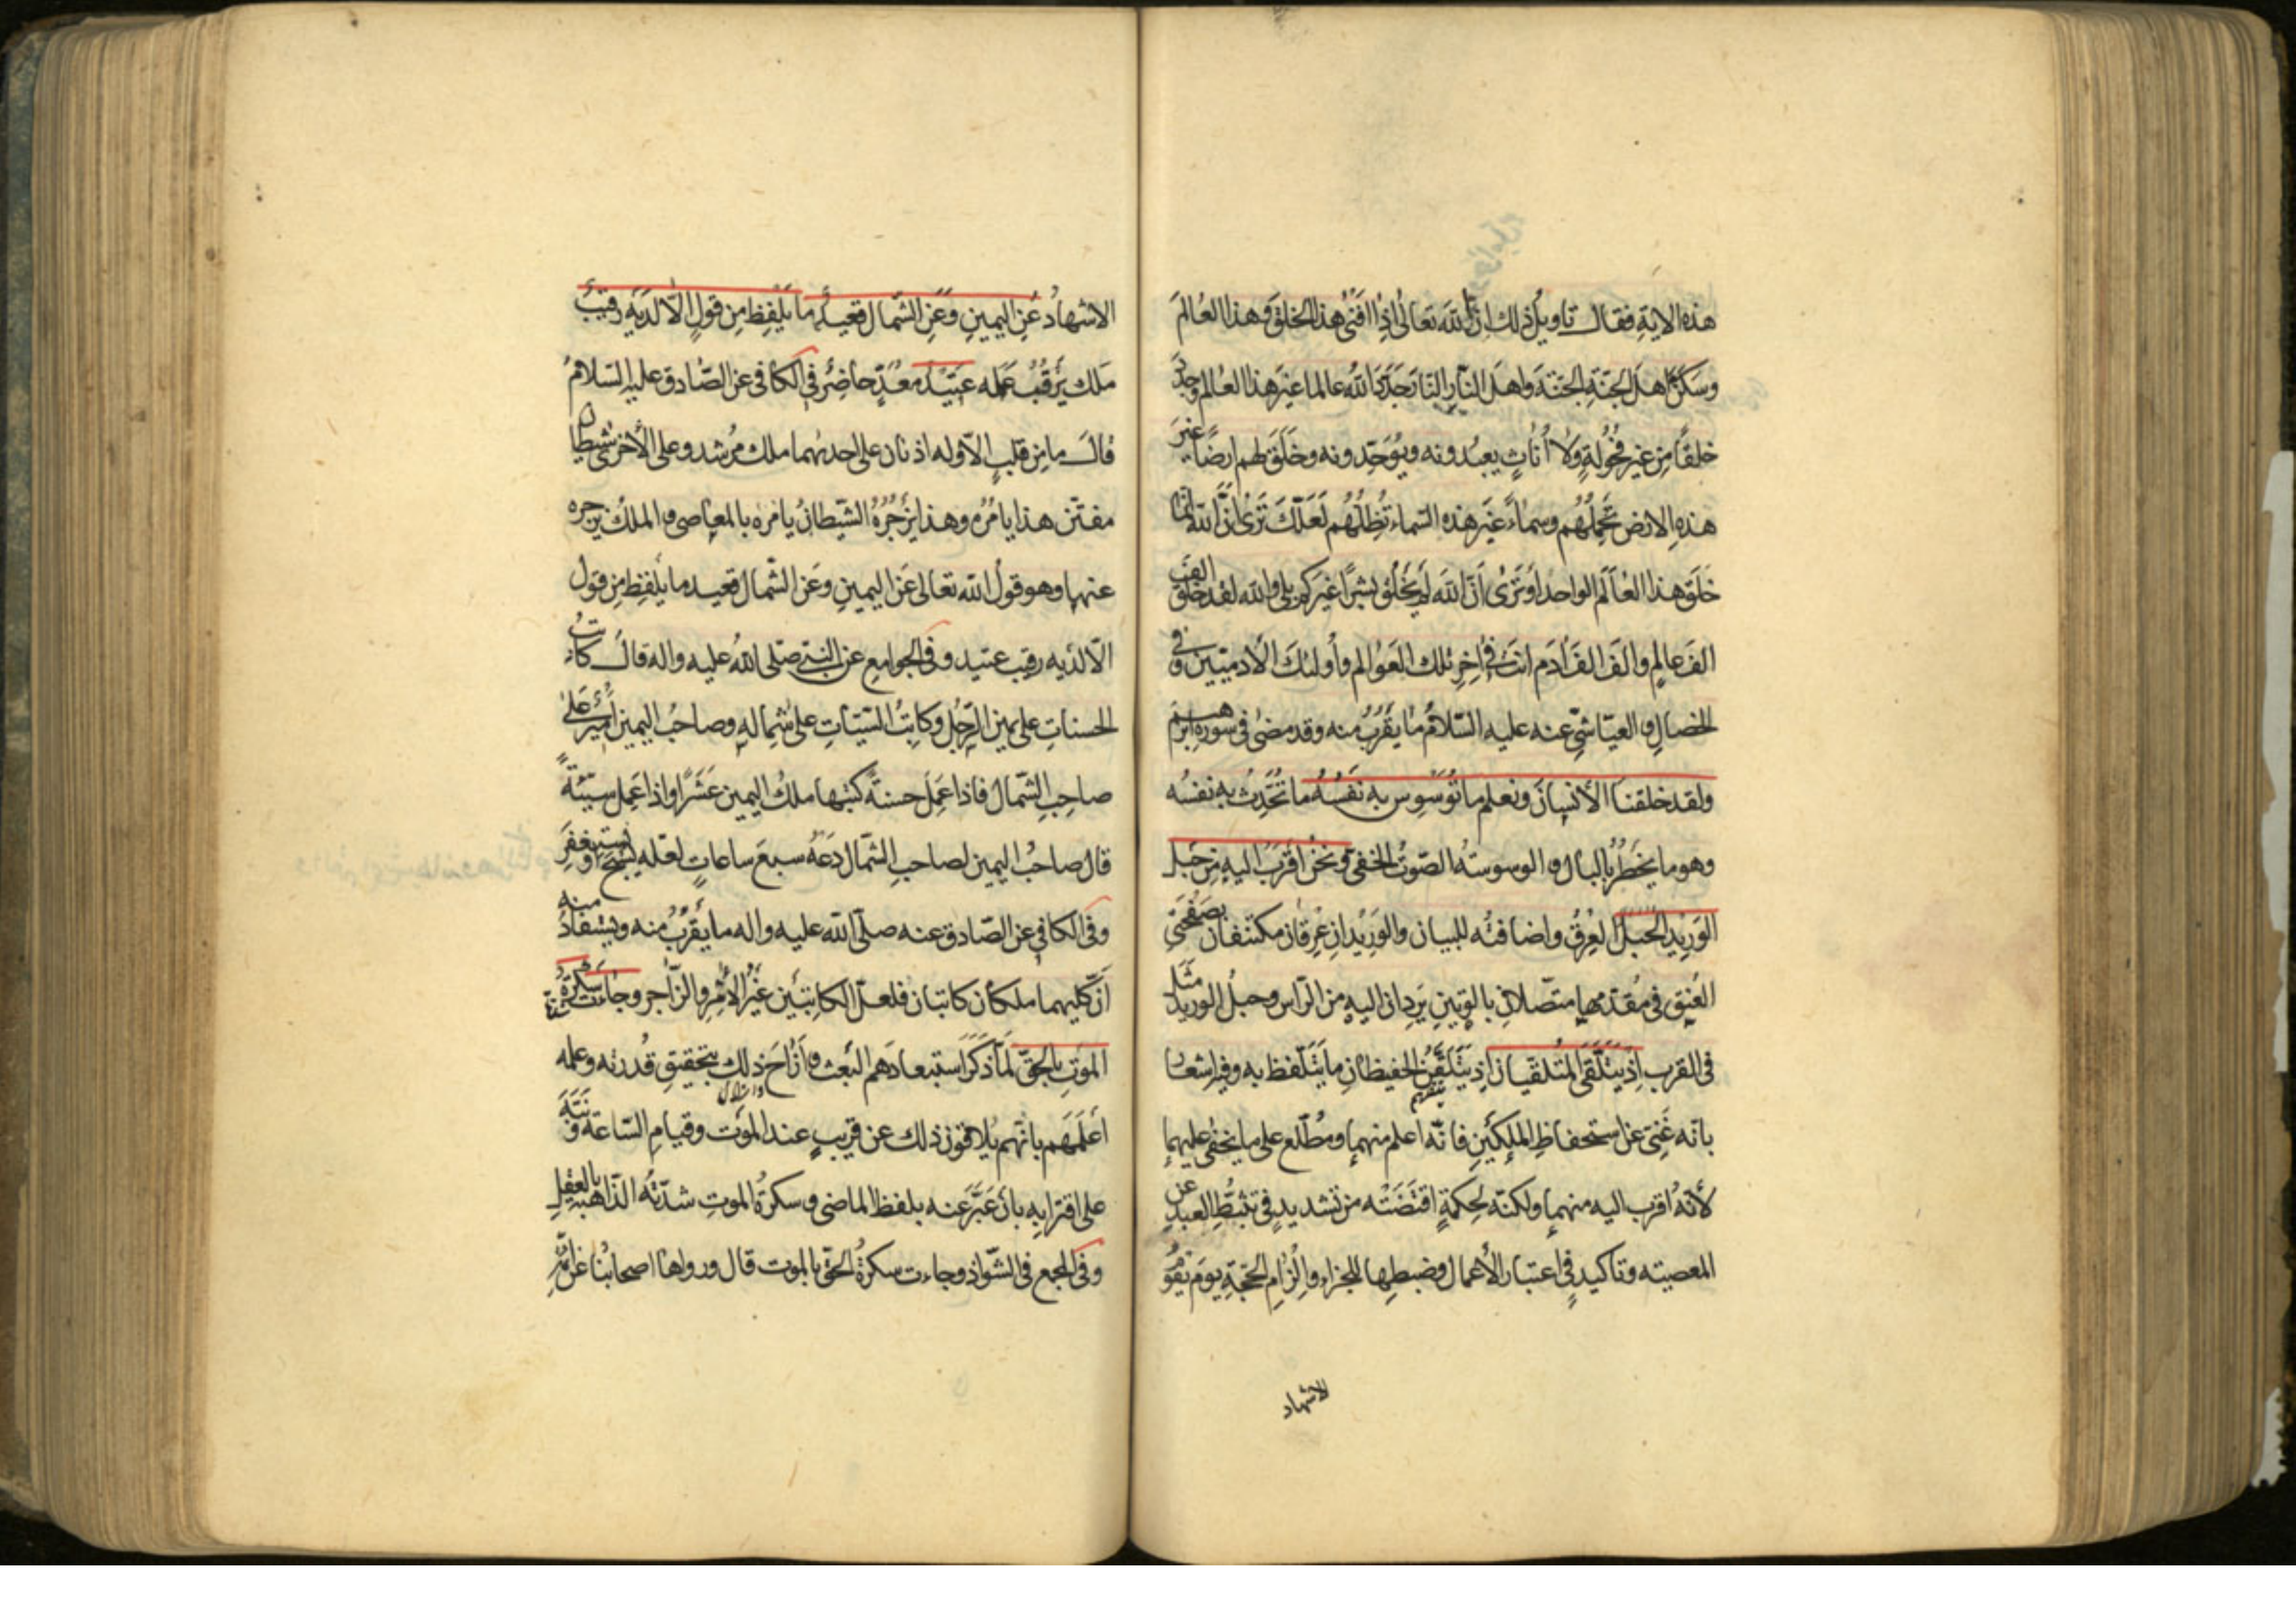 هذه الاية فقال تاويل ذلك ان الله تعالى اذا افنى هذا الخلق وهذا العالم
وسكن اهل الجنة الجنة واهل النار النار جدد الله عالما غير هذا العالم وجدد
خلقا من غير فحولة ولا اناث يعبدونه ويوحدونه وخلق لهم ارضا غير
هذه الارض تحملهم وسماء غير هذه السماء تظلهم لعلك ترى ان الله انما
خلق هذا العالم الواحد او ترى ان الله لم يخلق بشرا غيركم بلى والله لقد خلق الف
الف عالم والف الف ادم انت في اخر تلك العوالم واولئك الادميين وفي
الخصال والعياشي عنه عليه السلام ما يقرب منه وقد مضى في سورة ابرهيم
ولقد خلقنا الانسان ونعلم ما توسوس به نفسه ما تحدث به نفسه
وهو ما يخطر بالبال والوسوسة الصوت الخفى ونحن اقرب اليه من حبل
الوريد الحبل العرق واضافته للبيان والوريدان عرقان مكتنفان بصفحتي
العنق في مقدمها متصلان بالوتين يردان اليه من الراس وحبل الوريد مثل
في القرب اذ يتلقى المتلقيان اذ يتلقن الحفيظان ما يتلفظ به وفيه اشعار
بانه غنى عن استحفاظ الملكين فانه اعلم منهما ومطلع على ما يخفى عليهما
لانه اقرب اليه منهما ولكنه لحكمة اقتضته من تشديد في تثبط العبد عن
المعصيته وتاكيد في اعتبار الاعمال وضبطها للجزاء والزام الحجة يوم يقوم
الاشهاد
الاشهاد عن اليمين وعن الشمال قعيد ما يلفظ من قول الا لديه رقيب
ملك يرقب عمله عتيد معد حاضر في الكافي عن الصادق عليه السلام
قال ما من قلب الا وله اذنان على احديهما ملك مرشد وعلى الاخرى شيطان
مفتن هذا يامره وهذا يزجره الشيطان يامره بالمعاصى والملك يزجره
عنها وهو قول الله تعالى عن اليمين وعن الشمال قعيد ما يلفظ من قول
الا لديه رقيب عتيد وفى الجوامع عن النبي صلى الله عليه واله قال كاتب
الحسنات على يمين الرجل وكاتب السيئات على شماله وصاحب اليمين امير على
صاحب الشمال فاذا عمل حسنة كتبها ملك اليمين عشرا واذا عمل سيئة
قال صاحب اليمين لصاحب الشمال دعه سبع ساعات لعله يسبح او يستغفر
وفى الكافي عن الصادق عنه صلى الله عليه واله ما يقرب منه ويستفاد منه
ان كليهما ملكان كاتبان فلعل الكاتبين غير الامر والزاجر وجاءت سكرة
الموت بالحق لما ذكر استبعادهم البعث وازاح ذلك بتحقيق قدرته وعلمه
اعلمهم بانهم يلاقون ذلك عن قريب عند الموت وقيام الساعة ونبه
على اقترابه بان عبر عنه بلفظ الماضي وسكرة الموت شدته الذاهبة بالعقل
وفى المجمع في الشواذ وجاءت سكرة الحق بالموت قال ورواها اصحابنا عن ائمة